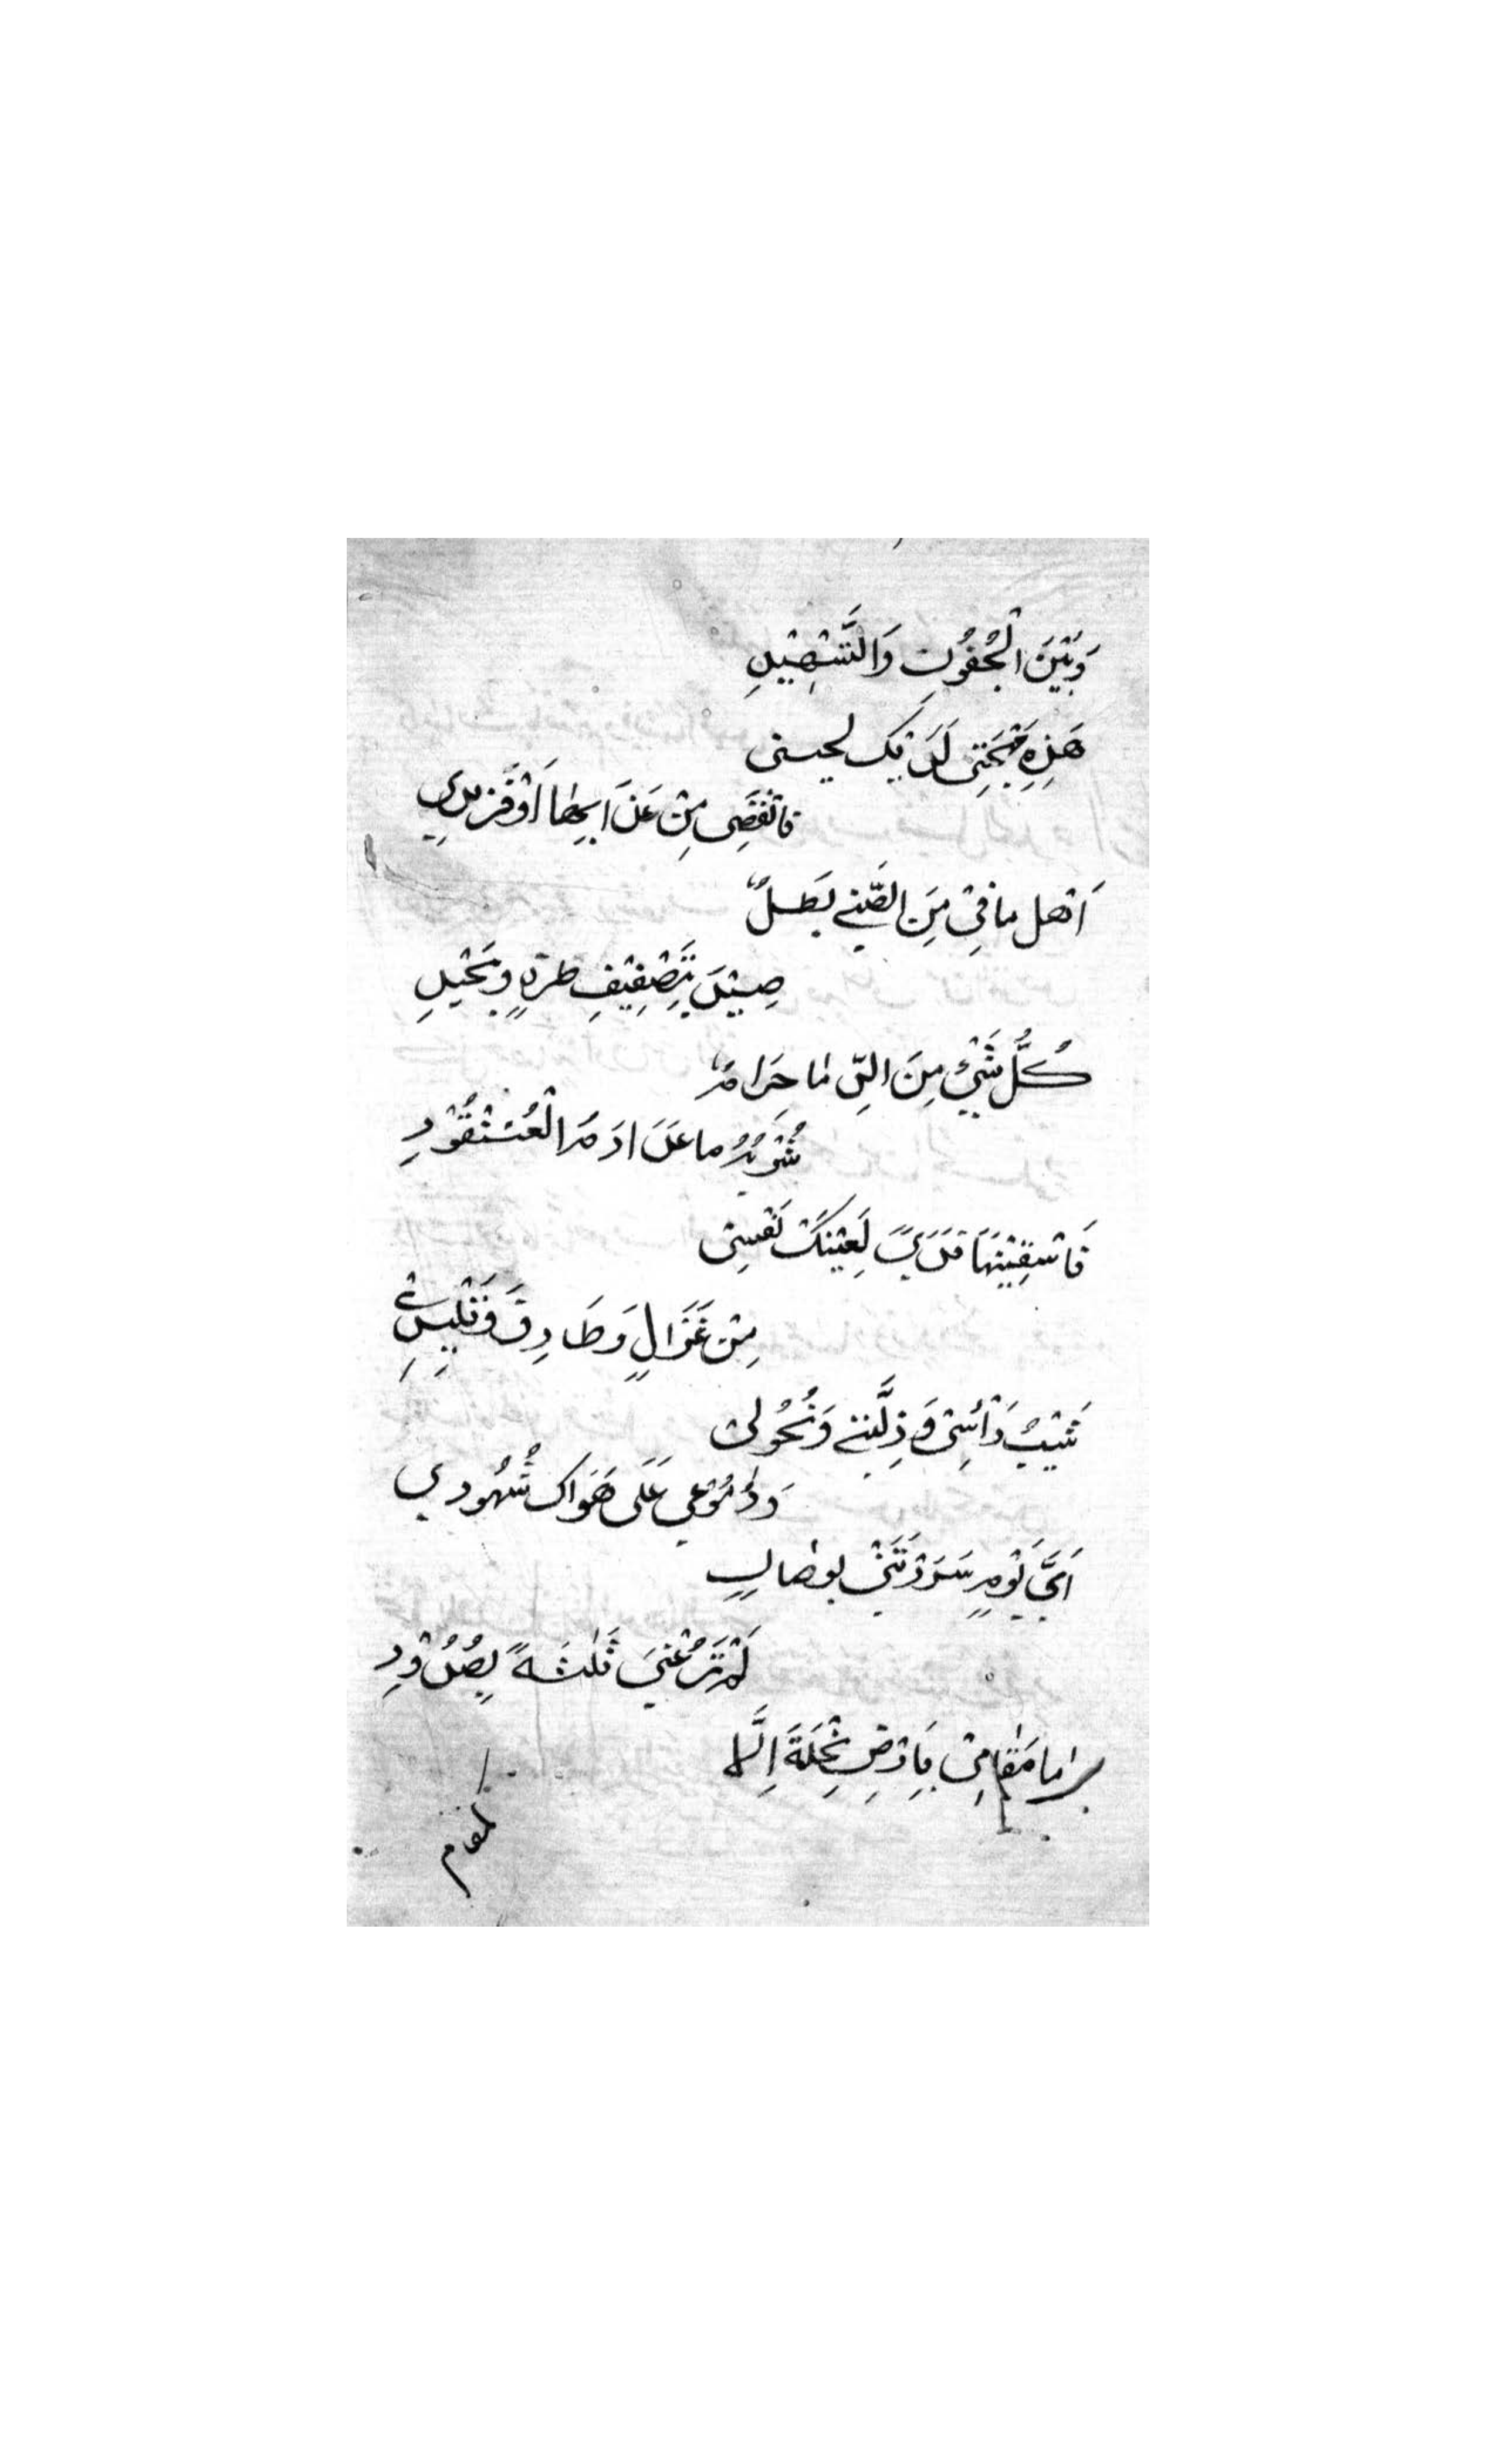 وَبَيْنَ الْجُفُوْنِ وَالتَّسْهِيْلِ
هَذِهِ مُهْجَتِى لَدَيْكِ لحينى
فانْقُصِى مِنْ عَذَابِهَا اَوْ فَزِيدِى
اَهْلُ مافِىْ مِنَ الضَّنٰے بَطَلٌ
صِيْدَ بِتَصْفِيْفِ طرةٍ وبجِيْدِ
كُلُّ شَيْئٍ مِنَ الدِّمَاءِ حَرَامٌ
شُرْبُهُ ما عَدَا دَمَ الْعُنْقُوْدِ
فَاسْقِيْنِهَا فَدًى لِعَيْنَكَ نَفْسِىْ
مِنْ غَزَالٍ وَطَارِفِىْ وَتَلِيْدِىْ
شَيْبُ رَأْسِىْ وَذِلَّتِىْ وَنُحُوْلِىْ
وَدُمُوْعِي عَلَى هَوَاك شُهُودِي
اَىَّ يَوْمٍ سَرَرْتَنِىْ بوصالٍ
لَمْ تَرُعْنِىَ ثَلٰثَةً بِصُدُوْدِ
مامَقَامِىْ بِاَرْضِ نَخْلَةَ اِلَّا
كمقام